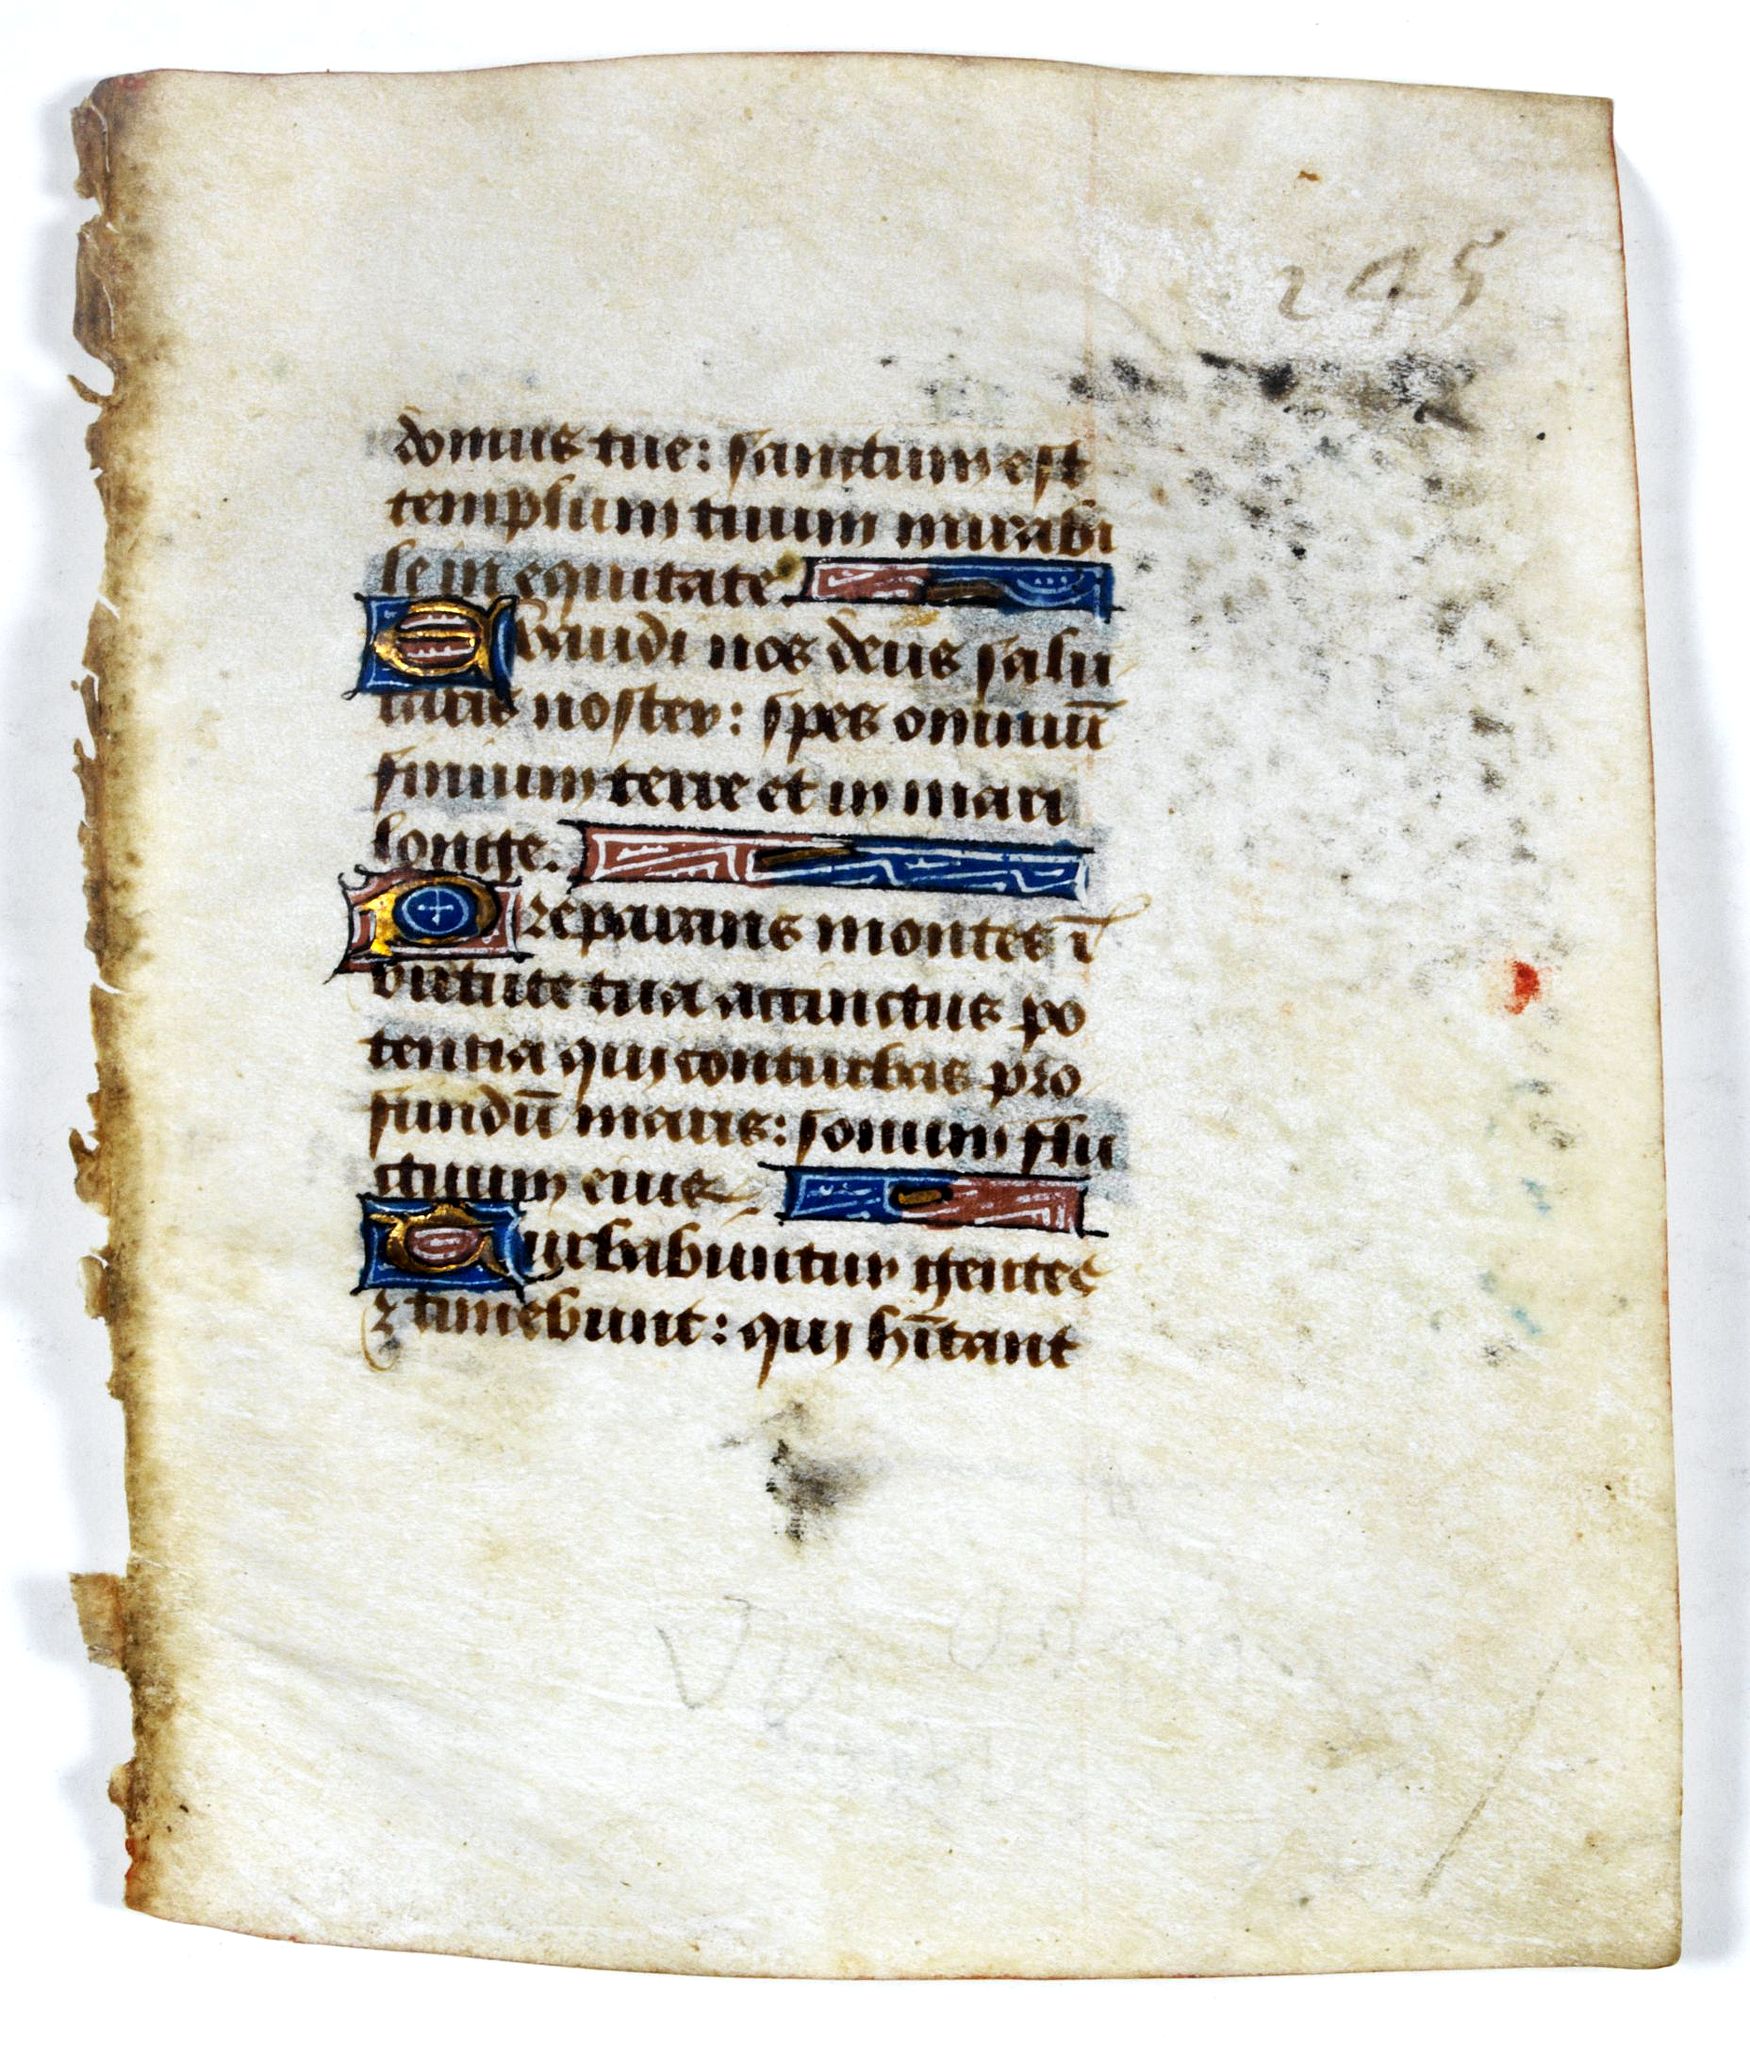 245
domus tue: sanctum est
templum tuum mirabi
le in equitate.
Exaudi nos deus salu
taris noster: spes omniū
finium terre et in mari
longe.
Preparans montes ī
virtute tua accinctus po
tentia qui conturbas pro
fundū maris: sonum flu
ctuum eius
Turbabuntur gentes
⁊ timebunt: qui hītant